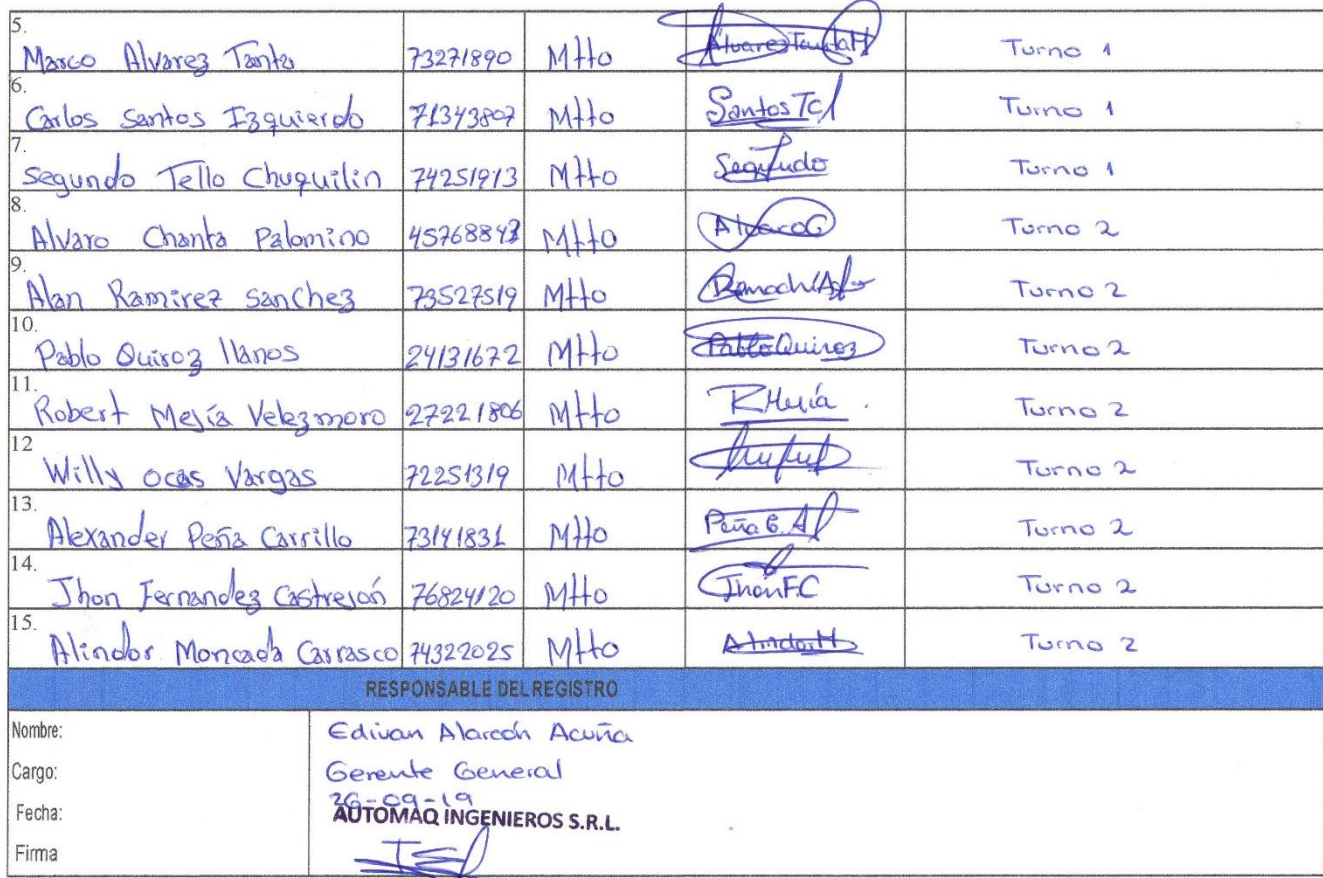 5. Marco Alvarez Tanta 73271890 Mtto Alvarez Tanta M Turno 1
6. Carlos Santos Izquierdo 71343807 Mtto Santos Turno 1
7. Segundo Tello Chuquilin 74251913 Mtto Segundo Turno 1
8. Alvaro Chanta Palomino 45768843 Mtto Alvaro C Turno 2
9. Alan Ramirez Sanchez 73527519 Mtto Turno 2
10. Pablo Quiroz llanos 24131672 Mtto Pablo Quiroz Turno 2
11. Robert Mejía Velezmoro 27221806 Mtto RMejía Turno 2
12 Willy Ocas Vargas 72251319 Mtto Turno 2
13. Alexander Peña Carrillo 73141831 Mtto Peña C. A Turno 2
14. Jhon Fernandez Castrejón 76824120 Mtto Jhon F.C Turno 2
15. Alindor Moncada Carrasco 74322025 Mtto Alindor M Turno 2
RESPONSABLE DEL REGISTRO
Nombre: Edivan Alarcón Acuña
Cargo: Gerente General
Fecha: 26-09-19
AUTOMAQ INGENIEROS S.R.L.
Firma